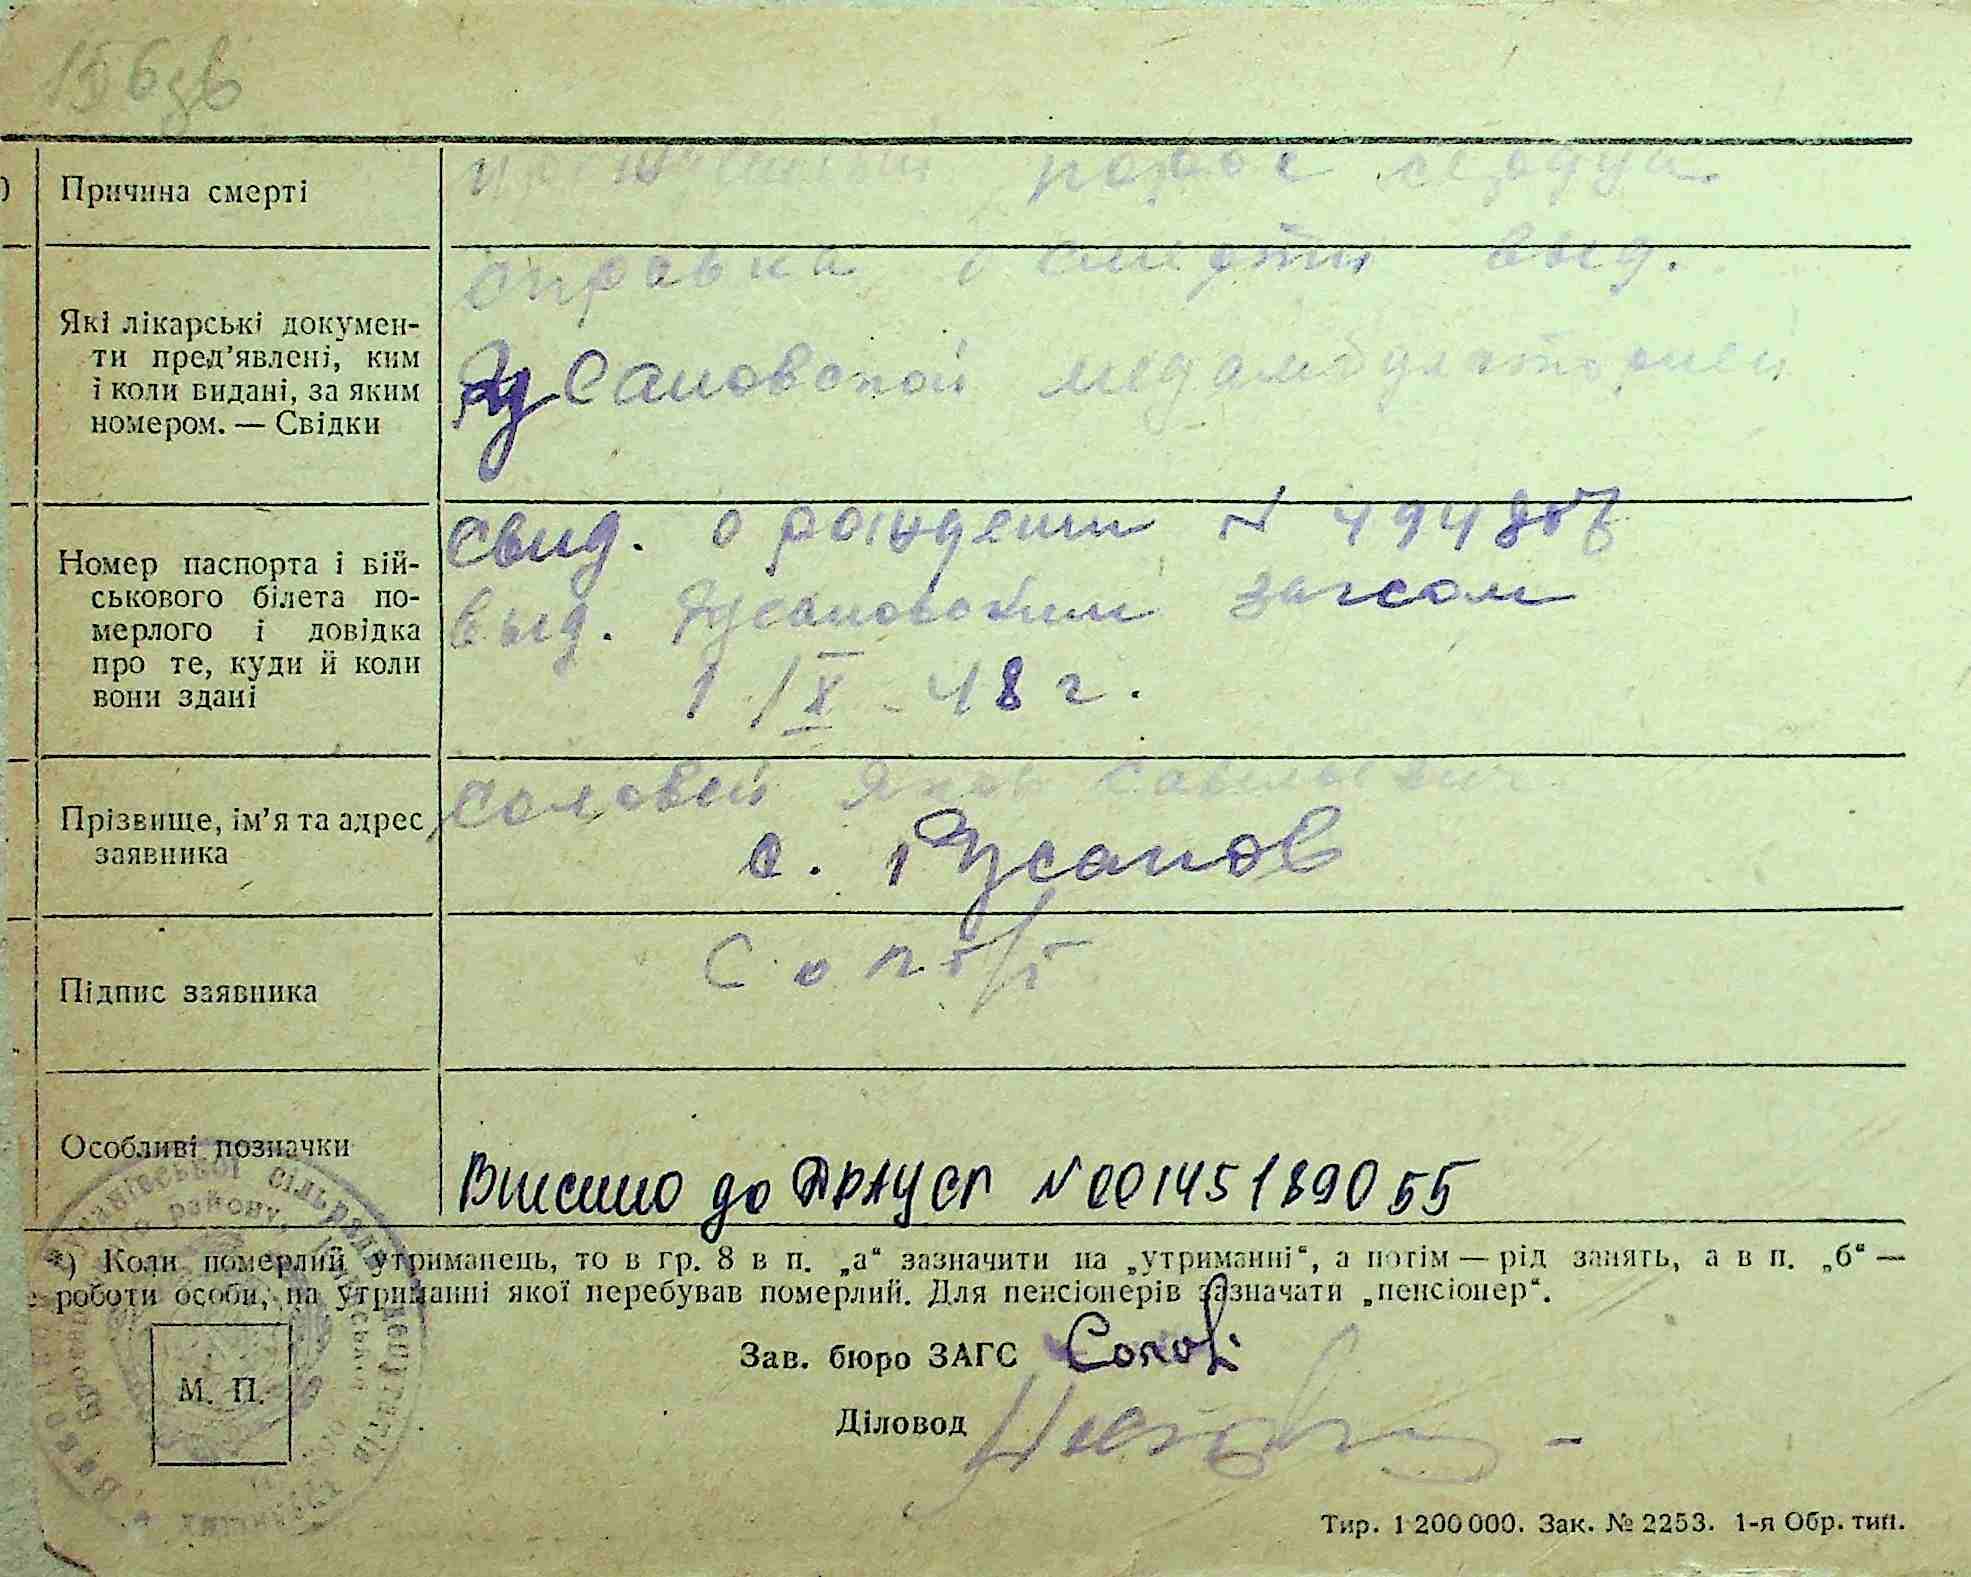 156зв
Причина смерті
порок сердца
Які лікарські докумен-
ти пред’явлені, ким
і коли видані, за яким
номером. — Свідки
справка о смерти выд.
Русановской медамбулаторией
Номер паспорта і вій-
ськового білета по-
мерлого і довідка
про те, куди й коли
вони здані
свид. о рождении N
выд. Русановским загсом
1/X - 48 г.
Прізвище, ім’я та адрес
заявника
Соловей Яков Савельевич
с. Русанов
Підпис заявника
Особливі позначки
Внесено до ДРАЦСГ N 00145189055
*) Коли померлий утриманець, то в гр. 8 в п. „а“ зазначити на „утриманні“, а потім — рід занять, а в п. „б“ —
роботи особи, на утриманні якої перебував померлий. Для пенсіонерів зазначати „пенсіонер“.
Зав. бюро ЗАГС
М. П.
Діловод
Тир. 1 200 000. Зак. № 2253. 1-я Обр. тип.